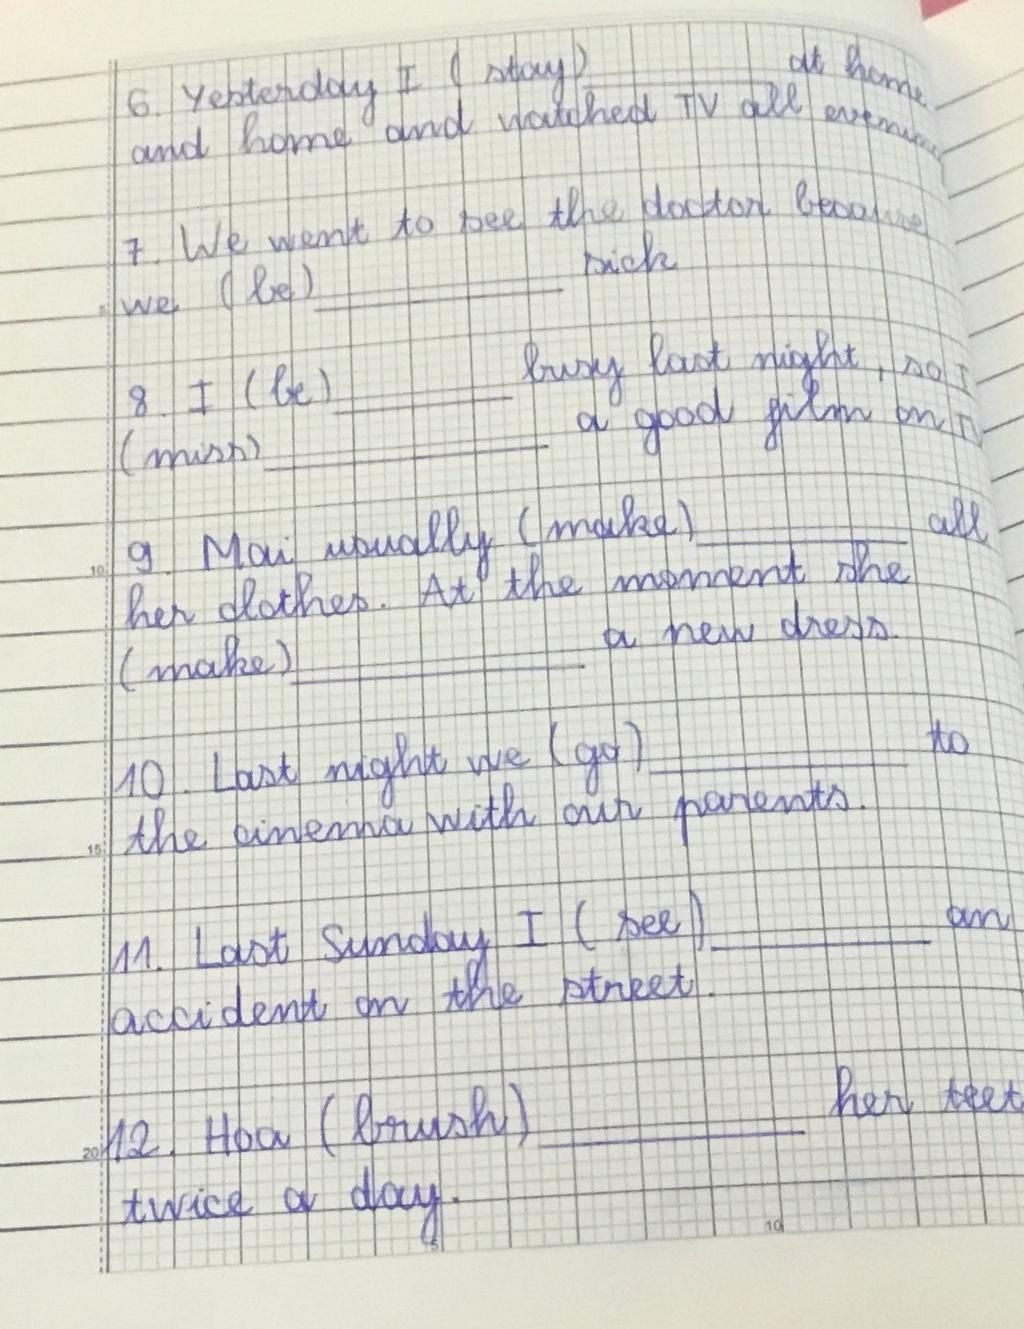 6. Yesterday I (stay) __________ at home
and home and watched TV all evening
7. We went to see the doctor because
we (be) __________ sick
8. I (be) __________ busy last night, so I
(miss) __________ a good film on TV
9. Mai usually (make) __________ all
her clothes. At the moment she
(make) __________ a new dress.
10. Last night we (go) __________ to
the cinema with our parents.
11. Last Sunday I (see) __________ an
accident on the street.
12. Hoa (brush) __________ her teet
twice a day.
5
10
15
20
5
10